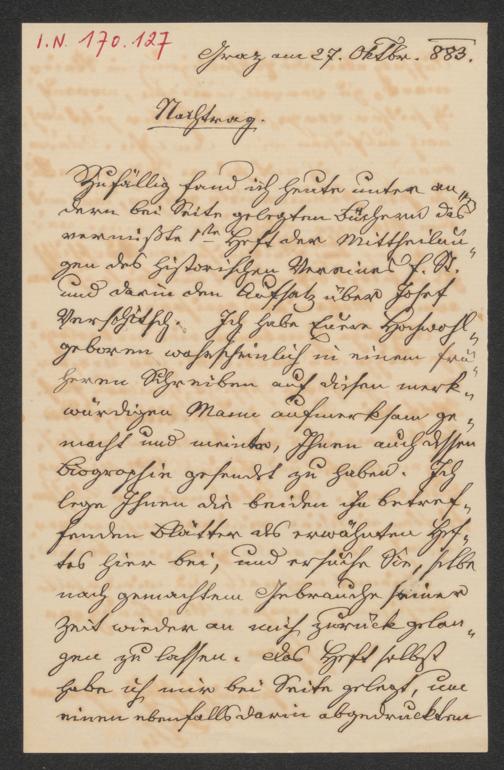 I.N. 170.127
Graz am 27. Oktbr. 883.
Nachtrag.
Zufällig fand ich heute unter an„
dern bei Seite gelegten Büchern das
vermißte 1te Heft der Mittheilun„
gen des historischen Vereines f. St.
und darin den Aufsatz über Josef
Ich habe Euere Hochwohl„
geboren wahrscheinlich in einem frü„
heren Schreiben auf diesen merk„
würdigen Mann aufmerksam ge„
macht und meinte, Ihnen auch dessen
Biographie gesendet zu haben. Ich
lege Ihnen die beiden ihn betref„
fenden Blätter des erwähnten Hef„
tes hier bei, und ersuche Sie, selbe
nach gemachtem Gebrauche seiner
Zeit wieder an mich zurück gelan„
gen zu lassen. Das Heft selbst
habe ich mir bei Seite gelegt, um
einen ebenfalls darin abgedruckten